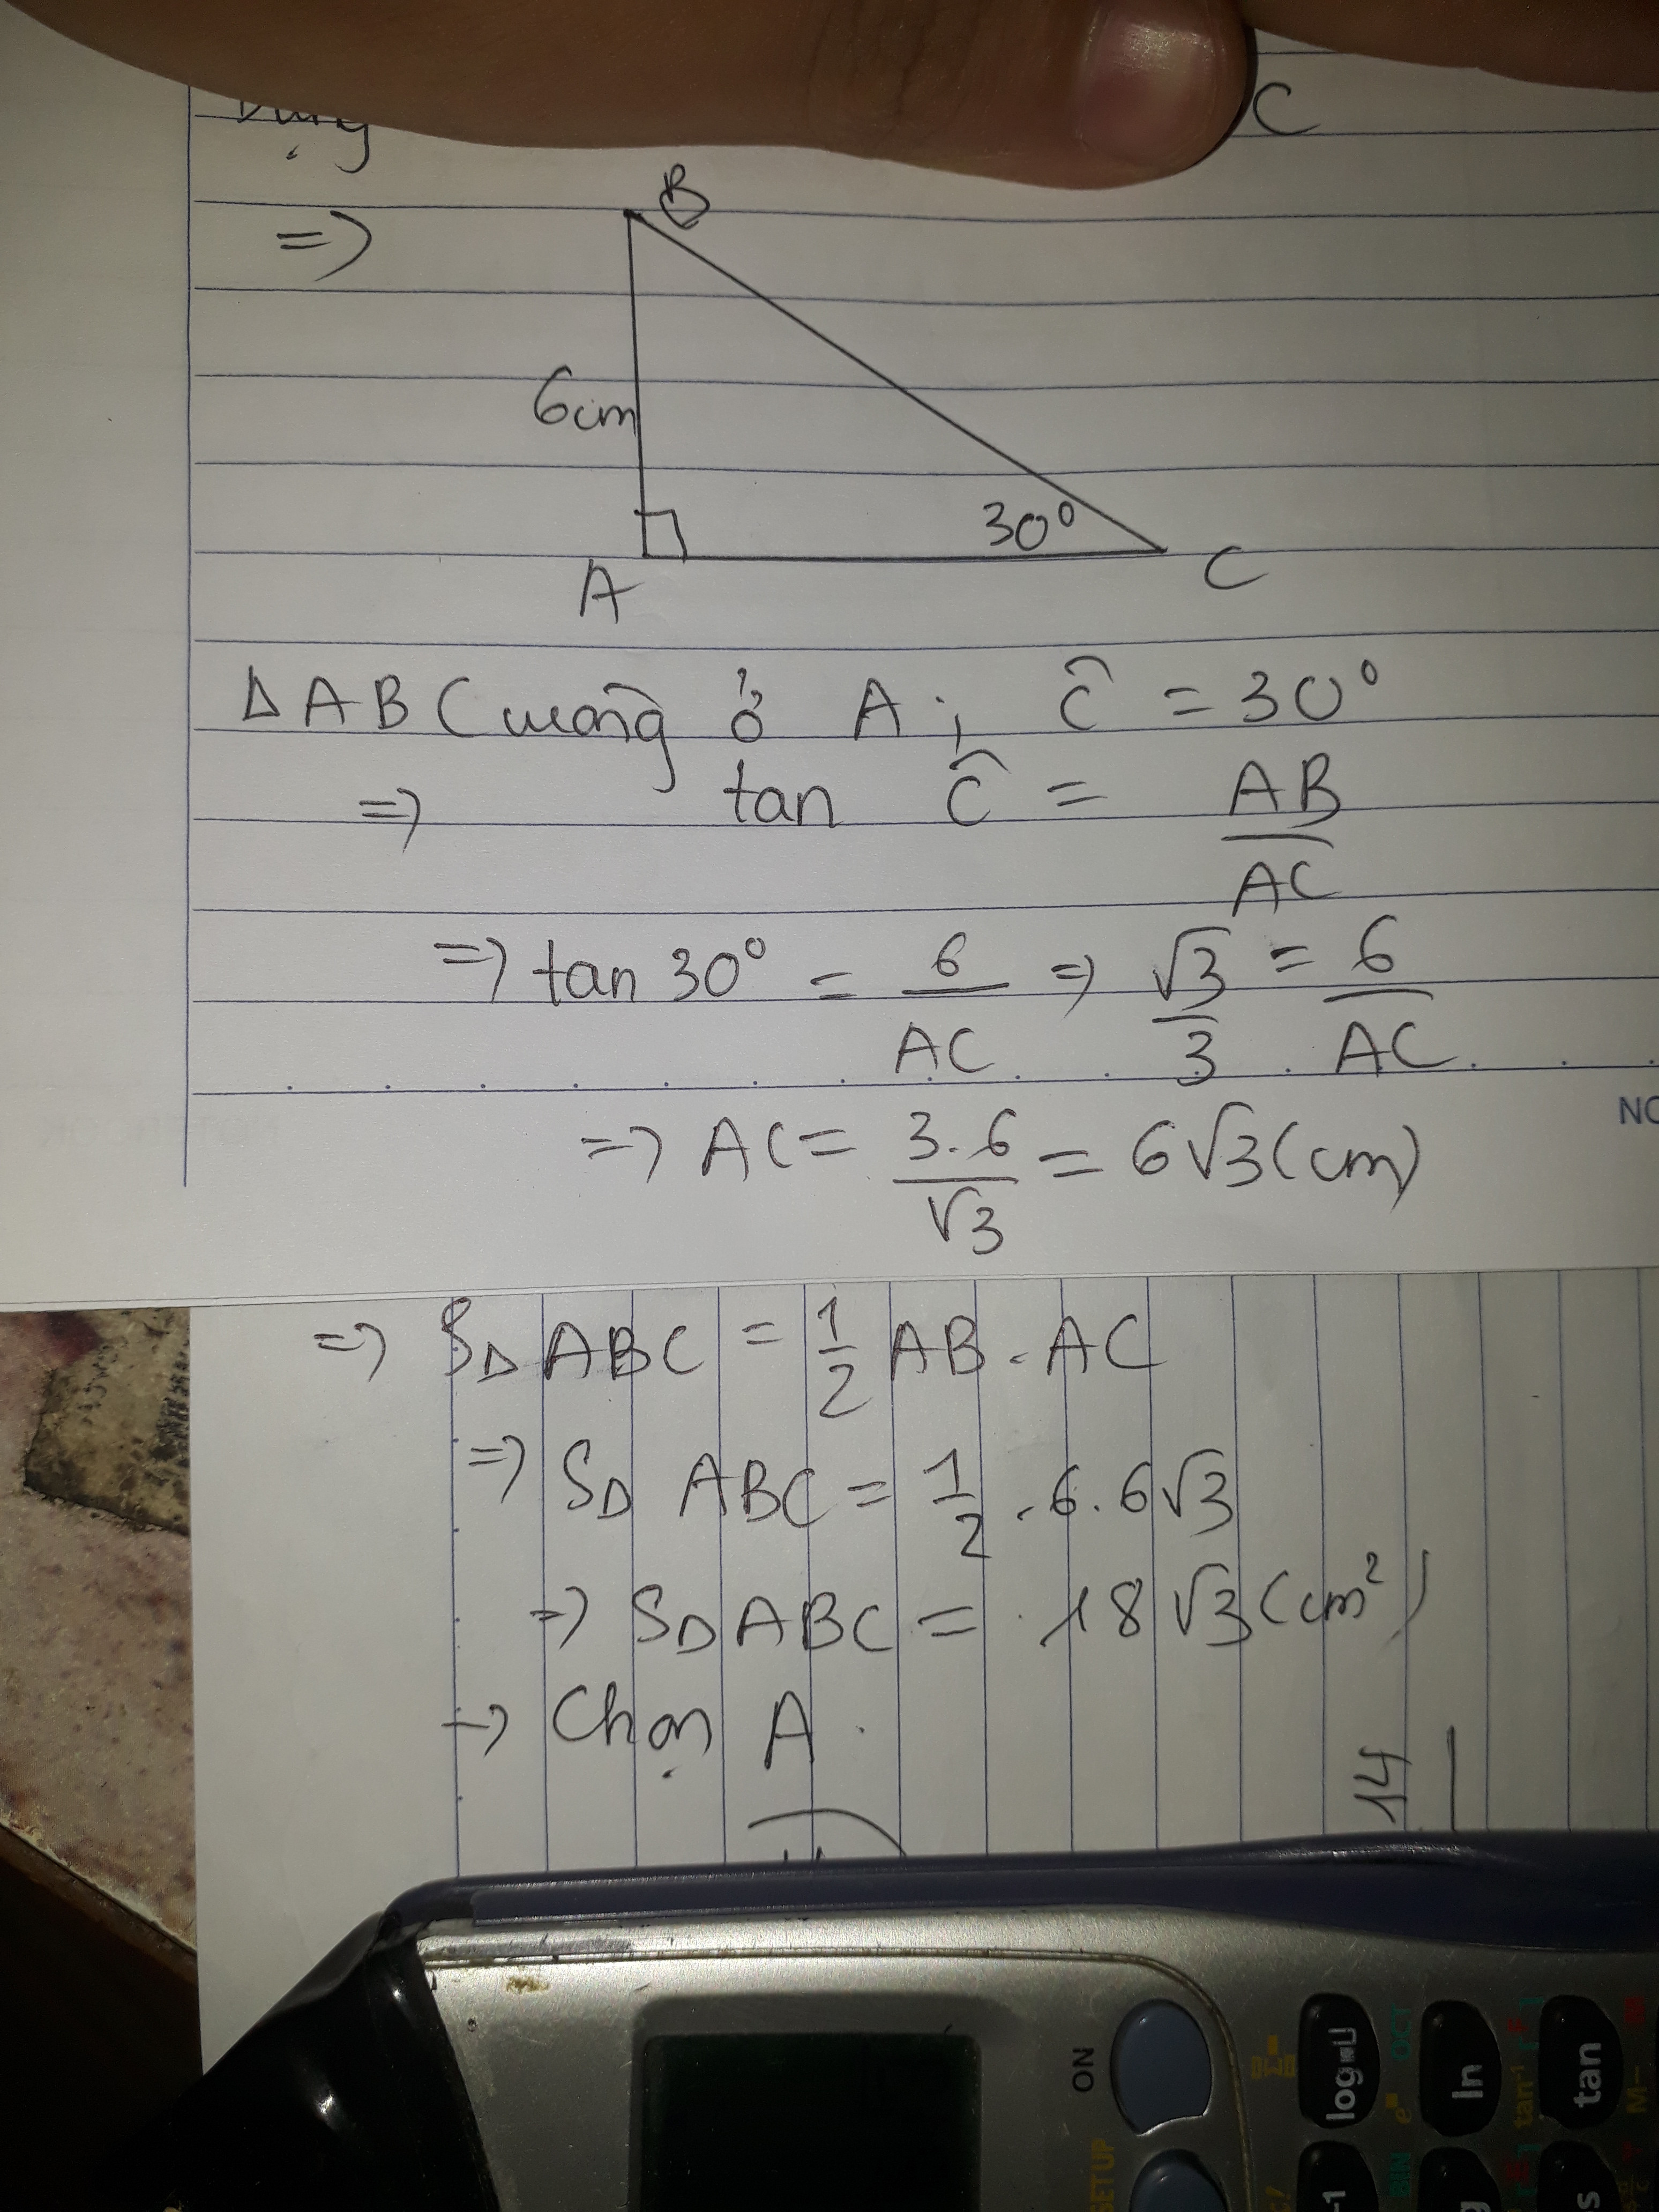 Dụng C
=>
B
6cm
30°
A
C
Δ ABC vuông ở A; Ĉ = 30°
=> tan Ĉ = AB/AC
=> tan 30° = 6/AC => √3/3 = 6/AC
NO
=> AC = 3.6/√3 = 6√3 (cm)
=> SΔ ABC = 1/2 AB.AC
=> SΔ ABC = 1/2 .6.6√3
=> SΔ ABC = 18√3 (cm²)
-> Chọn A.
14
ON
log
ln
tan
tan⁻¹
M-
OCT
SETUP
BIN